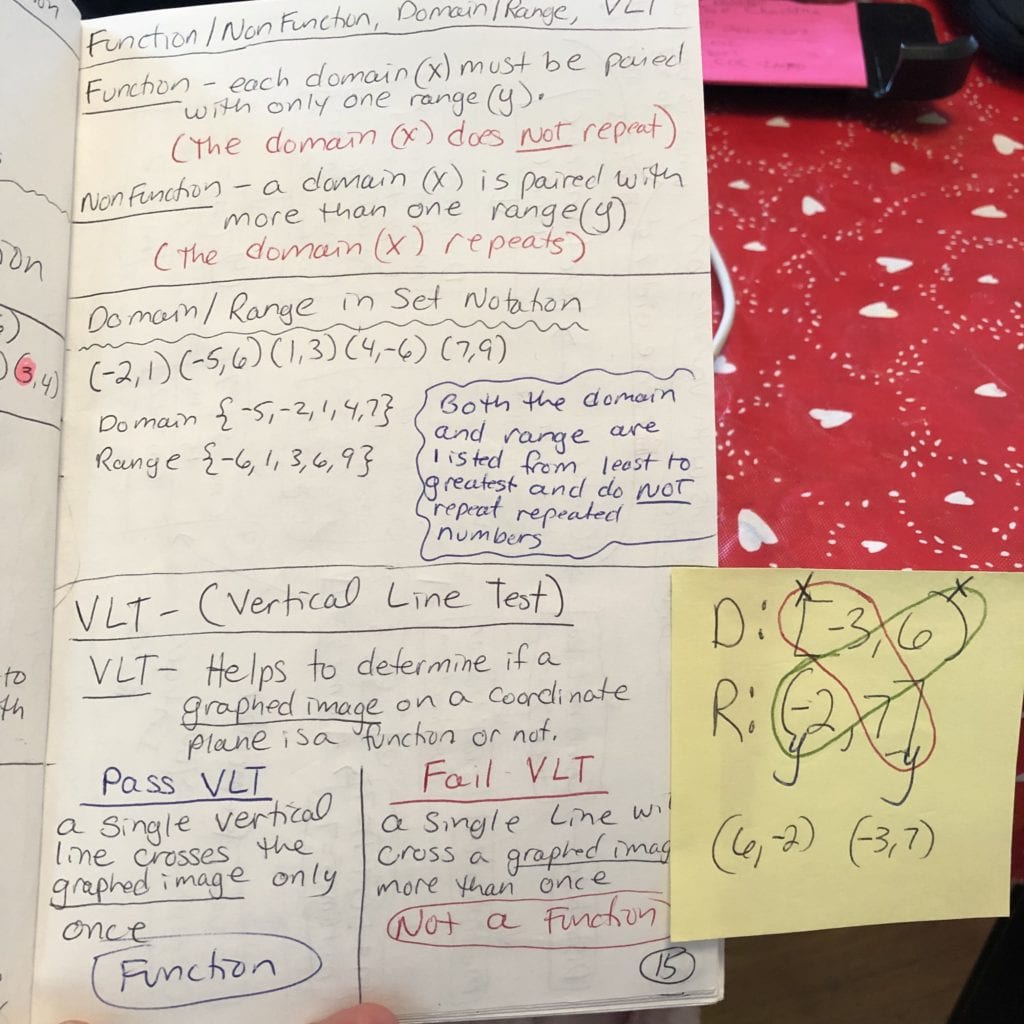 Function/NonFunction, Domain/Range, VLT
Function - each domain (x) must be paired
with only one range (y).
(The domain (x) does NOT repeat)
NonFunction - a domain (x) is paired with
more than one range (y)
(the domain (x) repeats)
Domain/Range in Set Notation
(-2,1) (-5,6) (1,3) (4,-6) (7,9)
Domain {-5,-2,1,4,7}
Range {-6,1,3,6,9}
Both the domain
and range are
listed from least to
greatest and do NOT
repeat repeated
numbers
VLT - (Vertical Line Test)
VLT - Helps to determine if a
graphed image on a coordinate
plane is a function or not.
Pass VLT
a single vertical
line crosses the
graphed image only
once
Function
Fail VLT
a single Line
cross a graphed
more than once
Not a Function
15
D: [-3,6)
x x
R: (-2,7]
y y
(6,-2) (-3,7)
ion
(3,4)
to
th